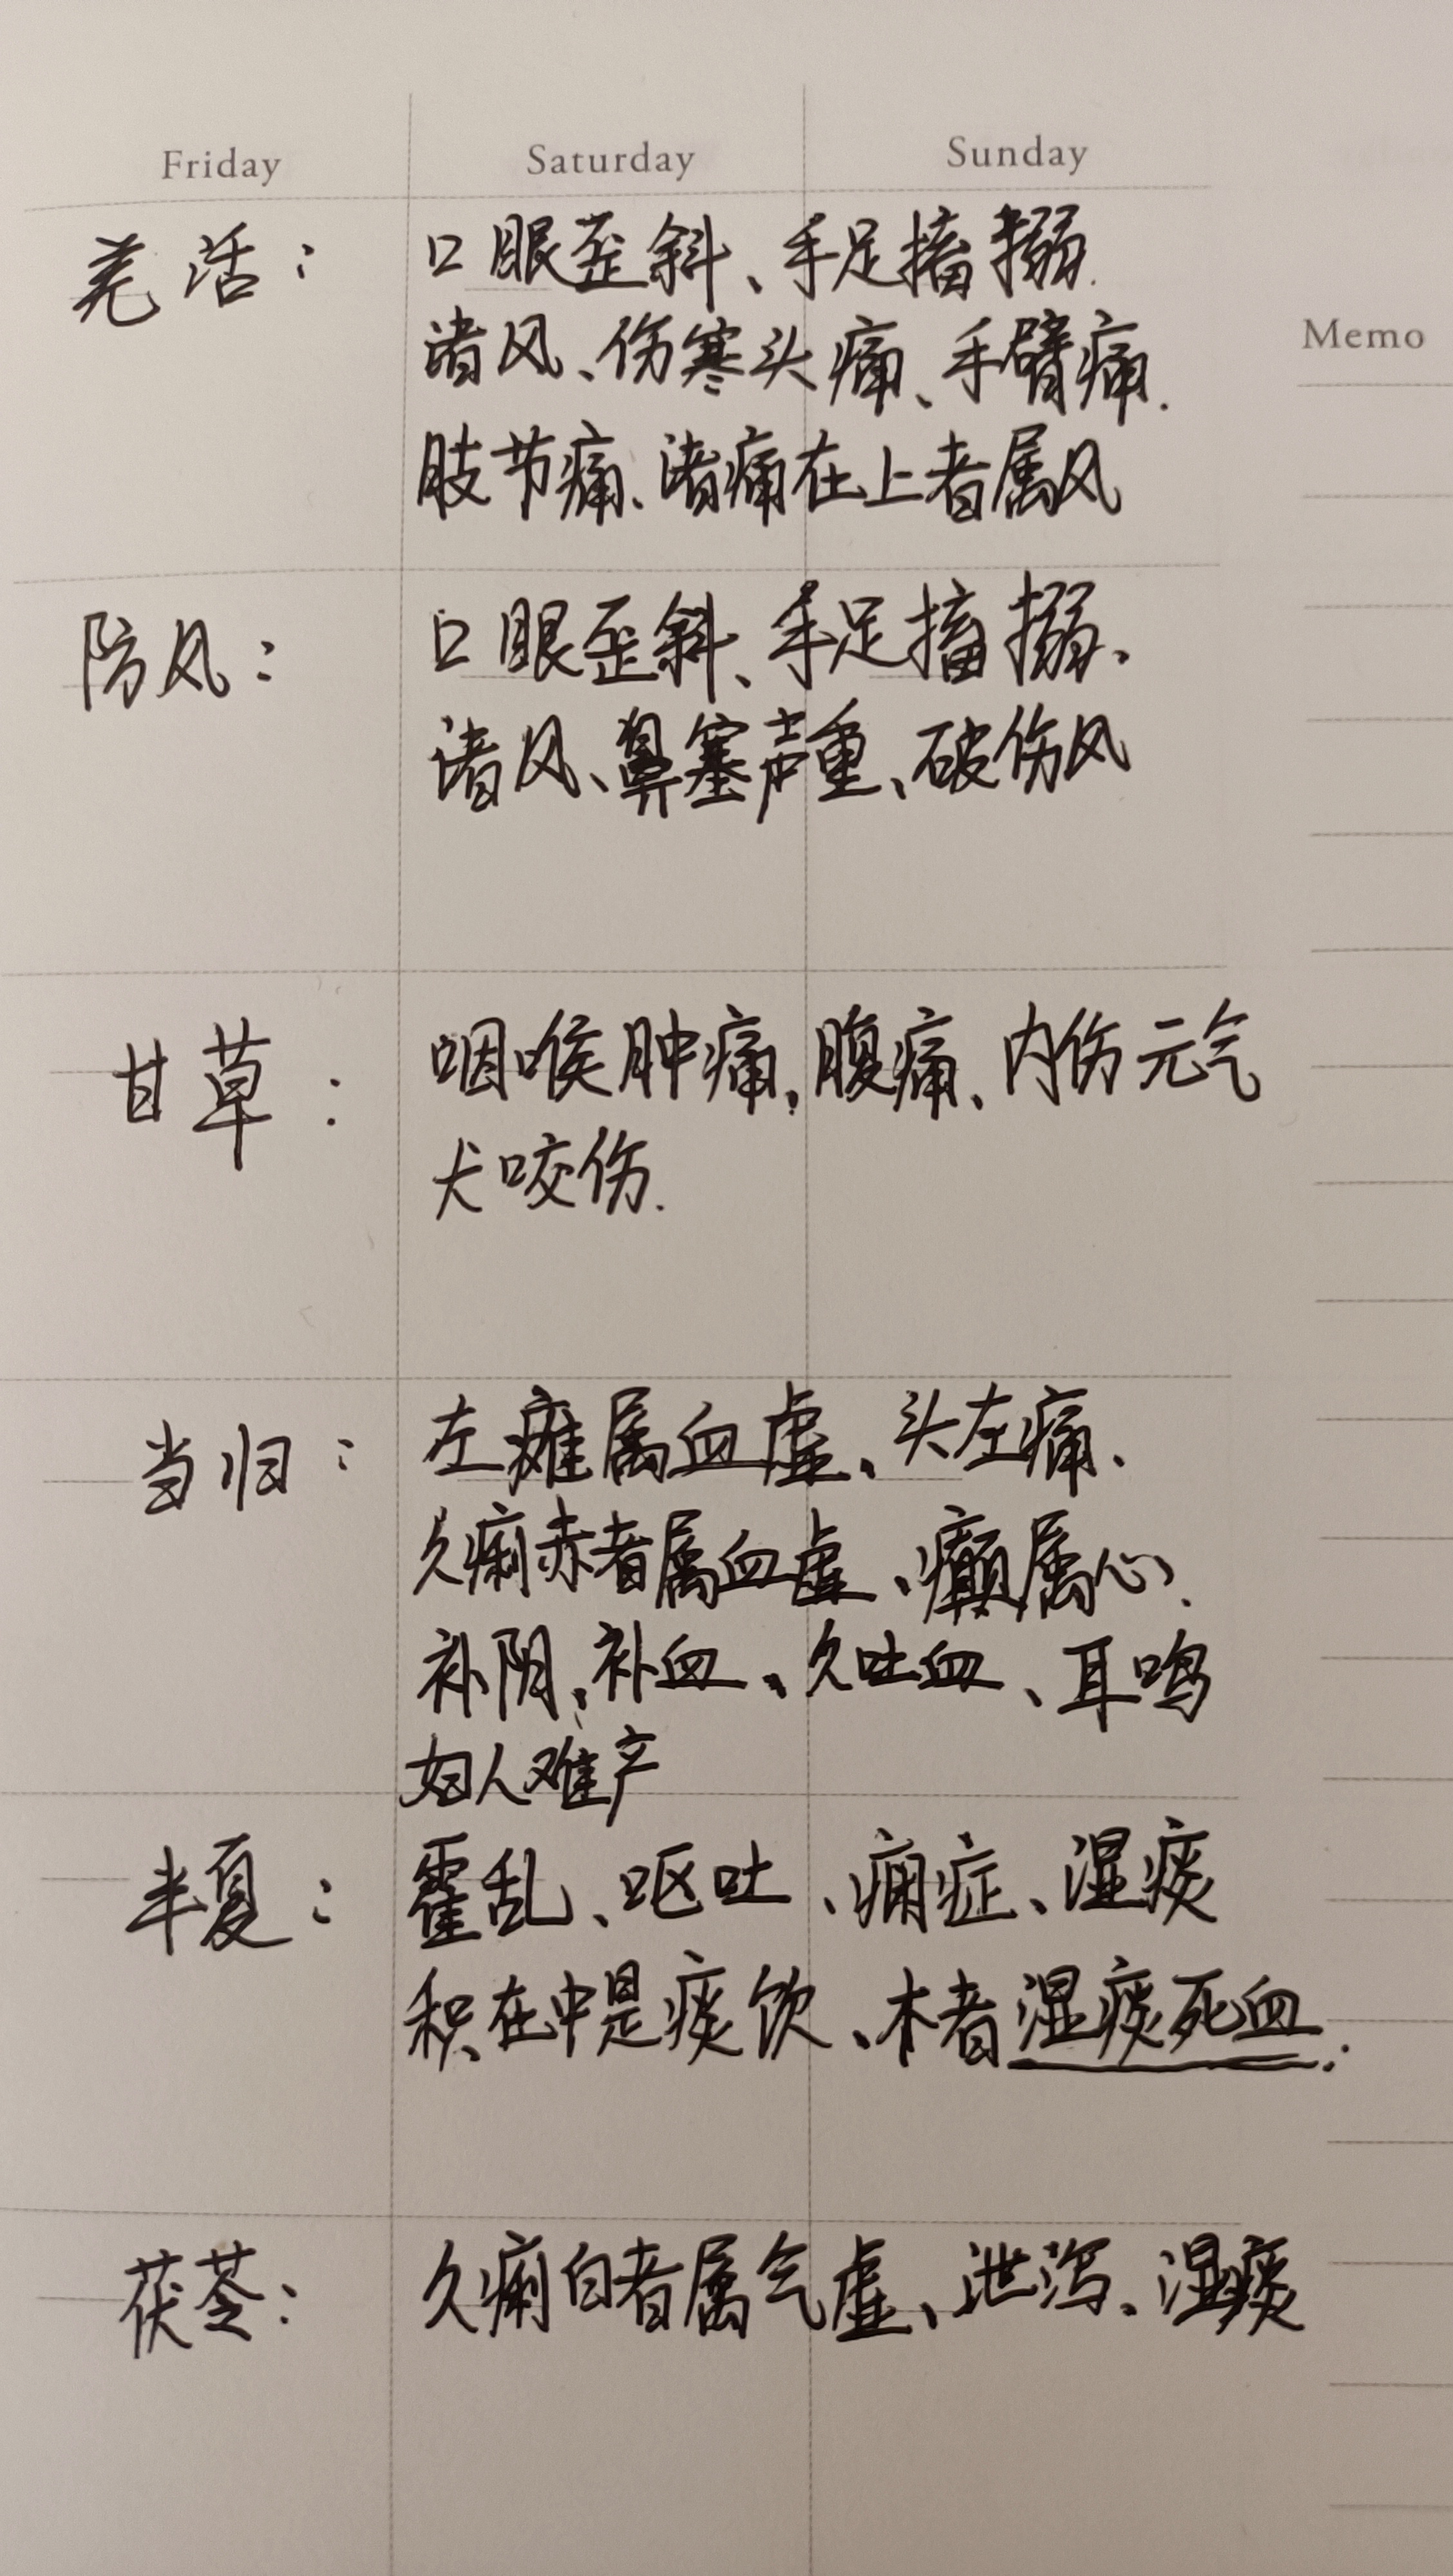 Friday Saturday Sunday
Memo
羌活： 口眼歪斜、手足搐搦.
诸风、伤寒头痛、手臂痛.
肢节痛、诸痛在上者属风
防风： 口眼歪斜、手足搐搦、
诸风、鼻塞声重、破伤风
甘草： 咽喉肿痛，腹痛、内伤元气
犬咬伤.
当归： 左瘫属血虚、头左痛、
久痢赤者属血虚、癫属心、
补阴、补血、久吐血、耳鸣
妇人难产
半夏： 霍乱、呕吐、痫症、湿痰
积在中是痰饮、木者湿痰死血.
茯苓： 久痢白者属气虚、泄泻、湿痰